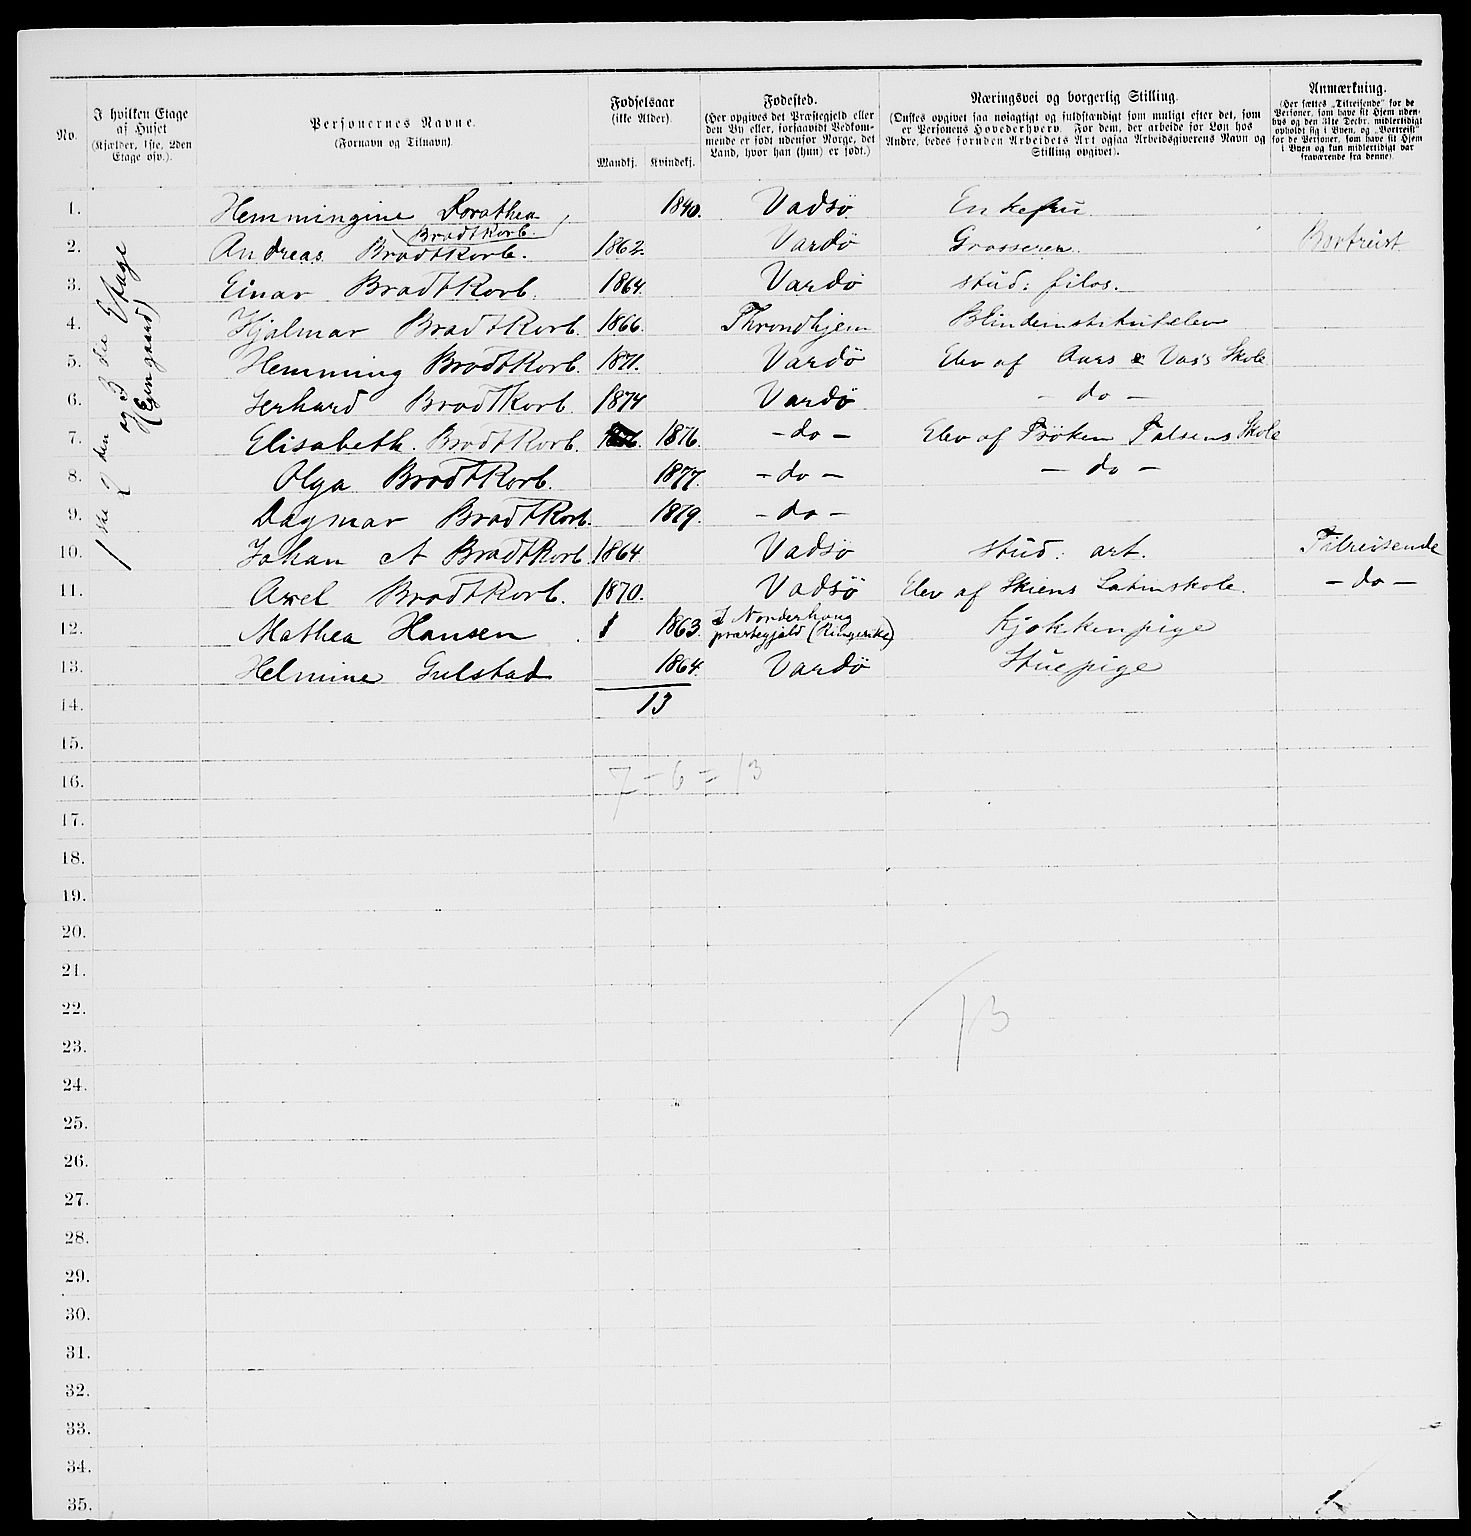 No.
I hvilken Etage af Huset
(Kjælder, 1ste, 2den Etage osv.).
Personernes Navne.
(Fornavn og Tilnavn)
Fødselsaar
(ikke Alder).
Mandkj. Kvindekj.
Fødested.
(Her opgives det Præstegjeld eller
den By eller, forsaavidt Vedkom-
mende er født udenfor Norge, det
Land, hvor han (hun) er født.)
Næringsvei og borgerlig Stilling.
(Ønskes opgivet saa nøiagtigt og fuldstændigt som muligt efter det, som
er Personens Hovederhverv. For dem, der arbeide for Løn hos
Andre, bedes foruden Arbeidets Art ogsaa Arbeidsgiverens Navn og
Stilling opgivet).
Anmærkning.
(Her sættes „Tilreisende" for de
Personer, som have sit Hjem uden-
bys og den 31te Decbr. midlertidigt
opholdt sig i Byen, og „Bortreist"
for de Personer, som have sit Hjem
i Byen og kun midlertidigt var
fraværende fra denne).
1ste 2den og 3die Etage
(Egengaard)
1. Hemmingine Dorathea 1840. Vadsö Enkefru
(Brodtkorb.)
2. Andreas Brodtkorb. 1862. Vardö Grosserer. Bortreist
3. Einar Brodtkorb. 1864. Vardö stud: filos.
4. Hjalmar Brodtkorb. 1866. Throndhjem Blindeinstitutelev
5. Hemming Brodtkorb. 1871. Vardö Elev af Aars & Voss Skole
6. Gerhard Brodtkorb. 1874 Vardö - do -
7. Elisabeth. Brodtkorb. 1876. - do - Elev af Fröken Falsens Skole
8. Olga Brodtkorb. 1877. - do - - do -
9. Dagmar Brodtkorb. 1879. - do -
10. Johan A Brodtkorb 1864 Vadsö stud: art. Tilreisende
11. Axel Brodtkorb. 1870. Vadsö Elev af Skiens Latinskole. - do -
12. Mathea Hansen 1863. I Norderhoug
præstegjæld (Ringerike) Kjøkkenpige
13. Helmine Gulstad 1864. Vardö Stuepige
14. 13
15.
16. 7 - 6 = 13
17.
18.
19.
20.
21.
22. 13
23.
24.
25.
26.
27.
28.
29.
30.
31.
32.
33.
34.
35.